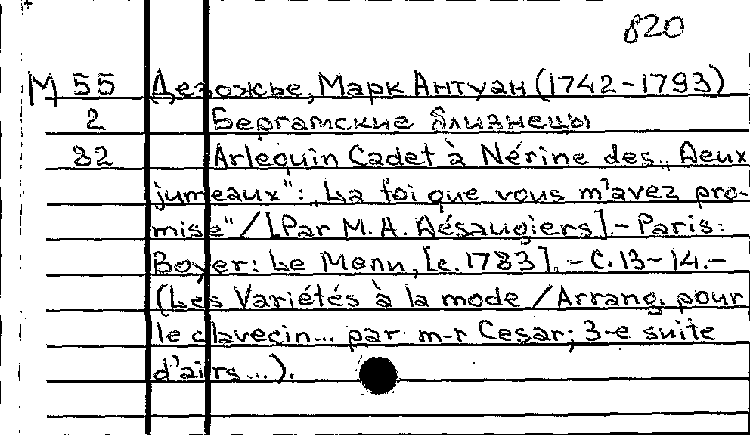 820
М 55 Дезожье, Марк Антуан (1742-1793)
2 Бергамские близнецы
82 Arlequin Cadet à Nérine des "Deux
jumeaux": "La foi que vous m'avez pro-
mise" / [Par M. A. Désaugiers]. - Paris:
Boyer: Le Menu, [c. 1783]. - С. 13-14. -
(Les Variétés à la mode / Arrang. pour
le clavecin... par m-r Cesar; 3-e suite
d'airs...).